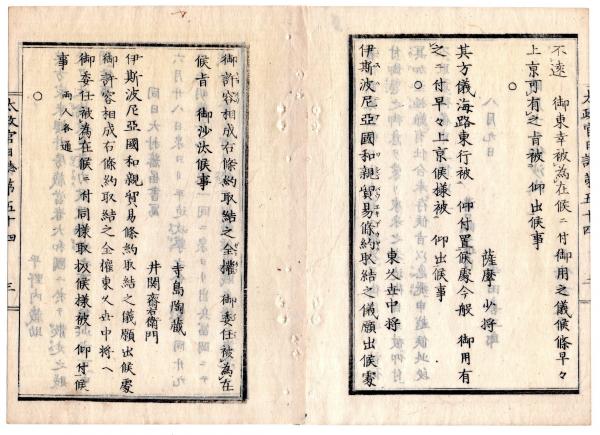 不遠　御東幸被為在候ニ付御用之儀候條早々
上京可有之旨被　仰出候事
○
薩摩少将
其方儀海路東行被　仰付置候處今般　御用有
之ニ付早々上京候様被　仰出候事
○
東久世中将
伊斯波尼亞國和親貿易條約取結之儀願出候處
御許容相成右條約取結之全權　御委任被為在
候旨　御沙汰候事
寺島陶藏
井関斎右衛門
伊斯波尼亞國和親貿易條約取結之儀願出候處
御許容相成右條約取結之全權東久世中将ヘ
御委任被為在候ニ付同様取扱候様被　仰付候
事　両人各通
○
太政官日誌第五十四
三